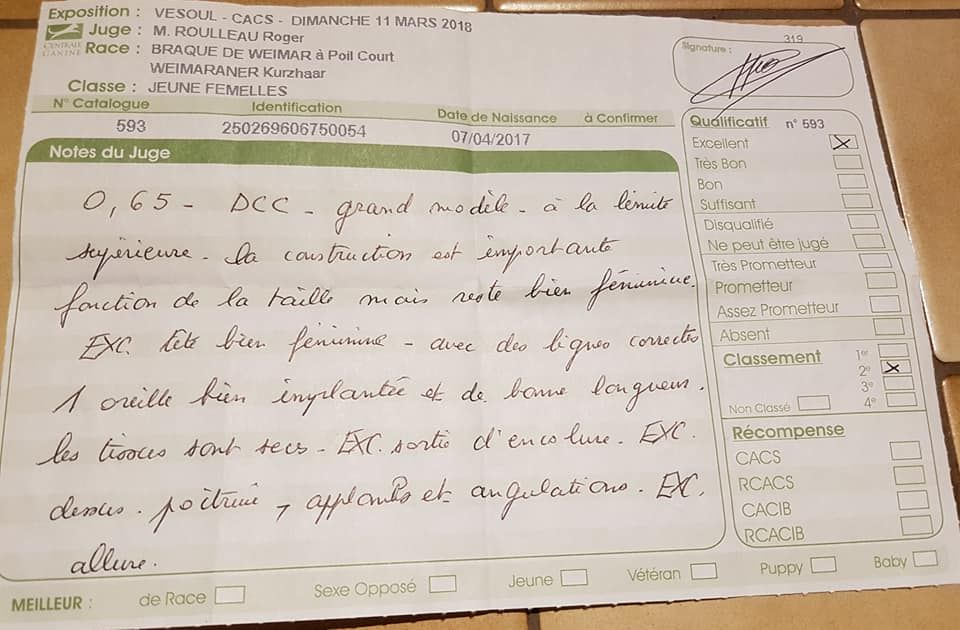 Exposition : VESOUL - CACS - DIMANCHE 11 MARS 2018
Juge : M. ROULLEAU Roger
CENTRALE CANINE
Race : BRAQUE DE WEIMAR à Poil Court
WEIMARANER Kurzhaar
Classe : JEUNE FEMELLES
N° Catalogue Identification Date de Naissance à Confirmer
593 250269606750054 07/04/2017
Notes du Juge
0,65 - DCC - grand modèle - à la limite
supérieure. la construction est importante
fonction de la taille mais reste bien féminine.
EXC. tête bien féminine - avec des lignes correctes
1 oreille bien implantée et de bonne longueur.
les tissus sont secs. EXC. sortie d'encolure. EXC.
dessus. poitrine, applombs et angulations. EXC.
allure.
319
Signature :
Qualificatif n° 593
Excellent X
Très Bon
Bon
Suffisant
Disqualifié
Ne peut être jugé
Très Prometteur
Prometteur
Assez Prometteur
Absent
Classement 1er
2e X
3e
Non Classé 4e
Récompense
CACS
RCACS
CACIB
RCACIB
MEILLEUR : de Race Sexe Opposé Jeune Vétéran Puppy Baby